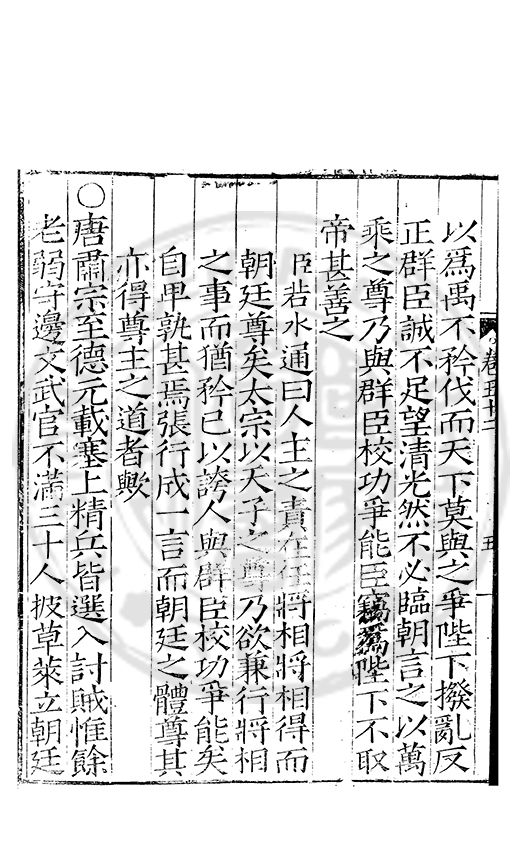 卷五十二
五
以爲禹不矜伐而天下莫與之爭陛下撥亂反
正群臣誠不足望清光然不必臨朝言之以萬
乘之尊乃與群臣校功爭能臣竊爲陛下不取
帝甚善之
臣若水通曰人主之責在任將相將相得而
朝廷尊矣太宗以天子之尊乃欲兼行將相
之事而猶矜已以誇人與群臣校功爭能矣
自卑孰甚焉張行成一言而朝廷之體尊其
亦得尊主之道者歟
○唐肅宗至德元載塞上精兵皆選入討賊惟餘
老弱守邊文武官不滿三十人披草萊立朝廷